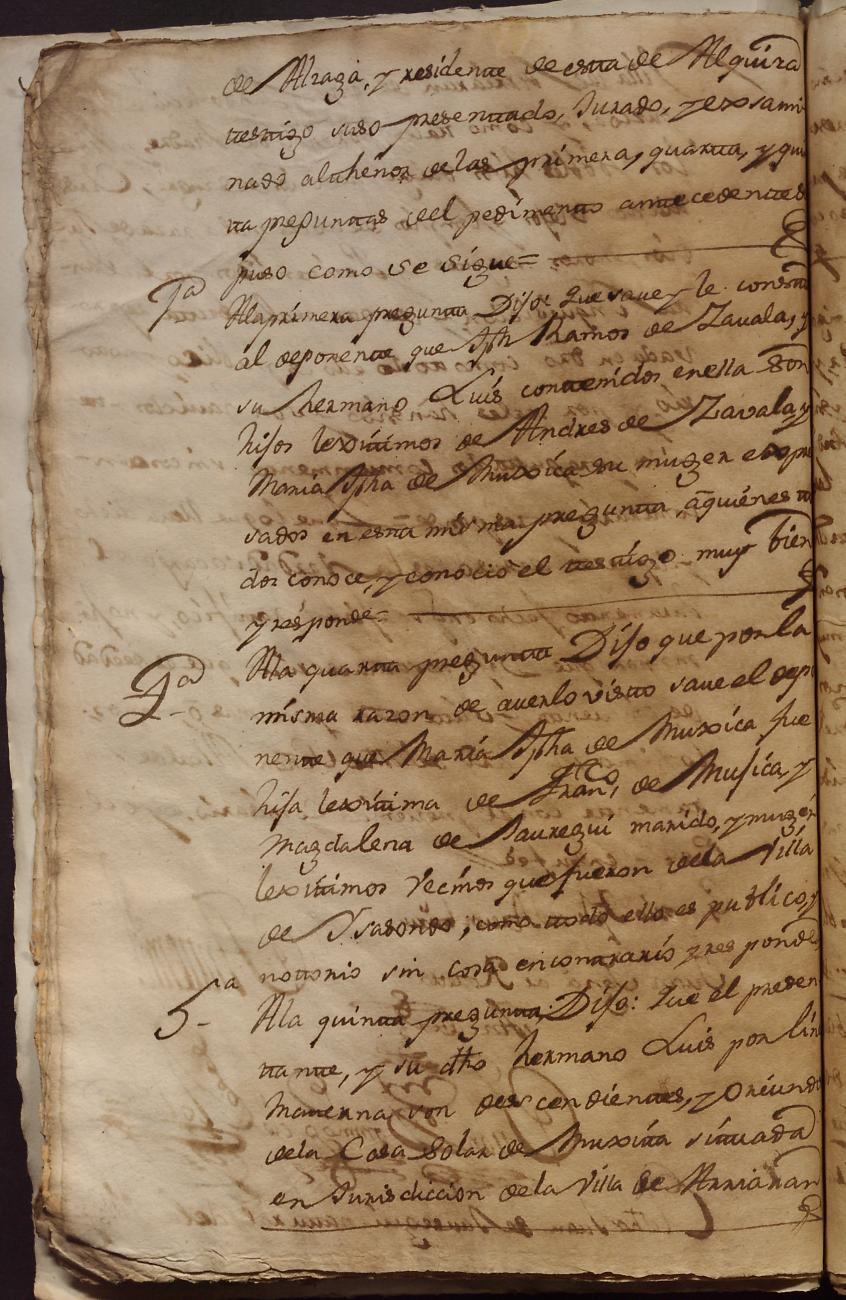 de Alzaga, y residente de esta de Alquiza
testigo suso presentado, Jurado, y exsami
nado althenor delas primera, quarta, y quin
ta preguntas del pedimento antecedente de
puso como se sigue=
1ª
Ala primera pregunta Dijo: Que save y le consta
al deponente que Jph Ramos de Zavala, y
su hermano Luis contenidos en ella son
hijos lexitimos de Andres de Zavala y
Maria Jpha de Muxica su muger expre
sados en esta misma pregunta, a quienes to
dos conoce, y conocio el testigo muy bien
y responde=
4ª
Ala quarta pregunta Dijo que por la
misma razon de averlo visto save el depo
nente que Maria Jpha de Muxica fue
hija lexitima de Franco, de Musica, y
Magdalena de Jauregui marido, y muger
lexitimos vecinos que fueron dela Villa
de Ysasondo, como todo ello es publico, y
nottorio sin cosa encontrario y responde
5ª
Ala quinta pregunta: Dijo: Que el presen
tante, y su dho hermano Luis por lin
Materna son descendientes, y Oriundo
dela Casa Solar de Muxica situada
en Jurisdiccion dela Villa de Arriaran